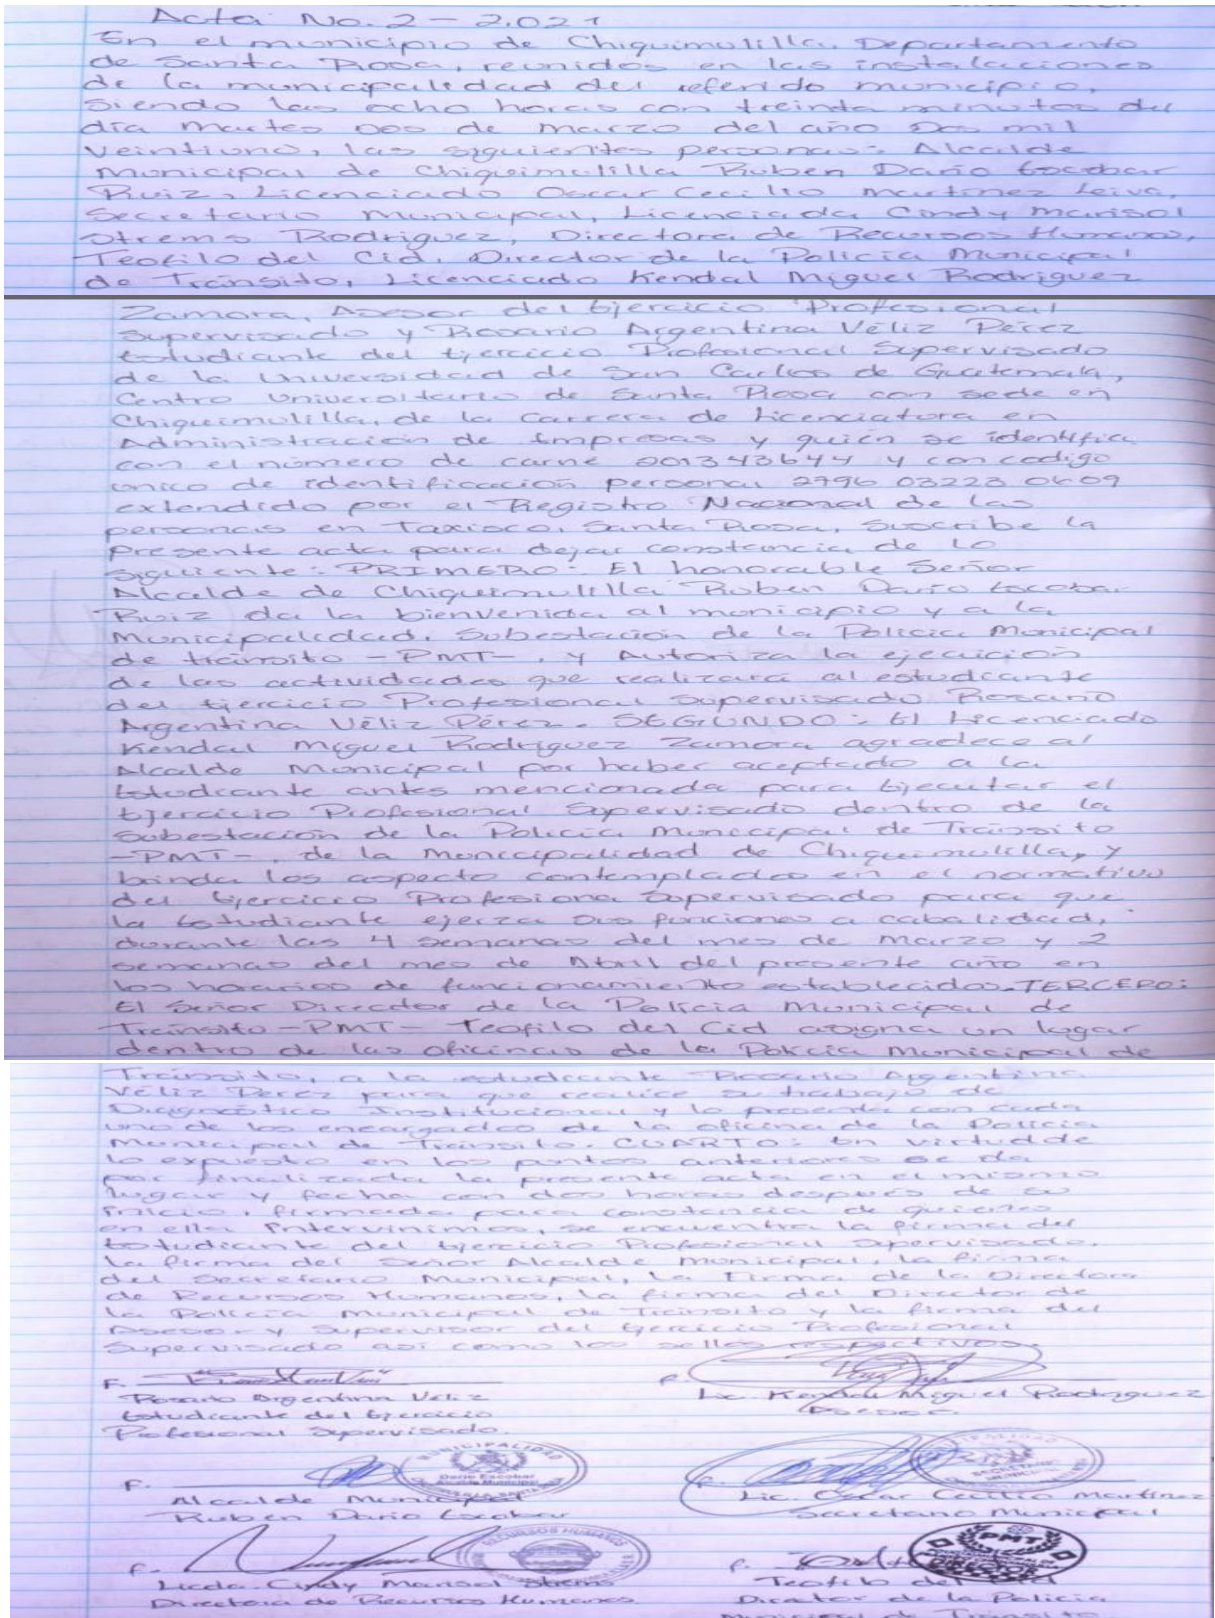 Acta No. 2 - 2,021
En el municipio de Chiquimulilla, Departamento
de Santa Rosa, reunidos en las instalaciones
de la municipalidad del referido municipio,
siendo las ocho horas con treinta minutos del
día martes dos de marzo del año dos mil
veintiuno, las siguientes personas: Alcalde
Municipal de Chiquimulilla Ruben Dario Escobar
Ruiz, Licenciado Oscar Cecilio Martinez Leiva,
Secretario Municipal, Licenciada Cindy Marisol
Strems Rodriguez, Directora de Recursos Humanos,
Teofilo del Cid, Director de la Policia Municipal
de Tránsito, Licenciado Kendal Miguel Rodriguez
Zamora, Asesor del Ejercicio Profesional
Supervisado y Rosario Argentina Véliz Pérez
Estudiante del Ejercicio Profesional Supervisado
de la Universidad de San Carlos de Guatemala,
Centro Universitario de Santa Rosa con sede en
Chiquimulilla, de la Carrera de Licenciatura en
Administración de Empresas y quién se identifica
con el número de carné 201343644 y con codigo
unico de identificación personal 2796 03223 0609
extendido por el Registro Nacional de las
personas en Taxisco, Santa Rosa, suscribe la
presente acta para dejar constancia de lo
siguiente: PRIMERO: El honorable Señor
Alcalde de Chiquimulilla Ruben Dario Escobar
Ruiz da la bienvenida al municipio y a la
Municipalidad, Subestación de la Policia Municipal
de tránsito -PMT-, y Autoriza la ejecución
de las actividades que realizará al estudiante
del Ejercicio Profesional Supervisado Rosario
Argentina Véliz Pérez. SEGUNDO: El Licenciado
Kendal Miguel Rodriguez Zamora agradece al
Alcalde Municipal por haber aceptado a la
Estudiante antes mencionada para Ejecutar el
Ejercicio Profesional Supervisado dentro de la
Subestación de la Policia Municipal de Tránsito
-PMT-, de la Municipalidad de Chiquimulilla, y
brinda los aspecto contemplados en el normativo
del Ejercicio Profesiona Supervisado para que
la Estudiante ejerza sus funciones a cabalidad,
durante las 4 semanas del mes de Marzo y 2
semanas del mes de Abril del presente año en
los horarios de funcionamiento establecidos. TERCERO:
El Señor Director de la Policia Municipal de
Tránsito -PMT- Teofilo del Cid asigna un lugar
dentro de las oficinas de la Policia Municipal de
Tránsito, a la estudiante Rosario Argentina
Véliz Perez para que realice su trabajo de
Diagnóstico Institucional y lo presente con cada
uno de los encargados de la oficina de la Policia
Municipal de Tránsito. CUARTO: En virtud de
lo expuesto en los puntos anteriores se da
por finalizada la presente acta en el mismo
lugar y fecha con dos horas después de su
inicio, firmada para constancia de quienes
en ella Intervinimos, se encuentra la firma del
Estudiante del Ejercicio Profesional Supervisado,
La firma del Señor Alcalde Municipal, la firma
del Secretario Municipal, La Firma de la Directora
de Recursos Humanos, la firma del Director de
la Policia Municipal de Tránsito y la firma del
Asesor y Supervisor del Ejercicio Profesional
Supervisado asi como los sellos respectivos.
F.
Rosario Argentina Véliz
Estudiante del Ejercicio
Profesional Supervisado.
F.
Lic. Kendal Miguel Rodriguez
Asesor
F.
MUNICIPALIDAD
Dario Escobar
Alcalde Municipal
Alcalde Municipal
Ruben Dario Escobar
F.
Lic. Oscar Cecilio Martinez
Secretario Municipal
F.
RECURSOS HUMANOS
Licda. Cindy Marisol Strems
Directora de Recursos Humanos
F.
PMT
Teofilo del Cid
Director de la Policia
Municipal de Tránsito